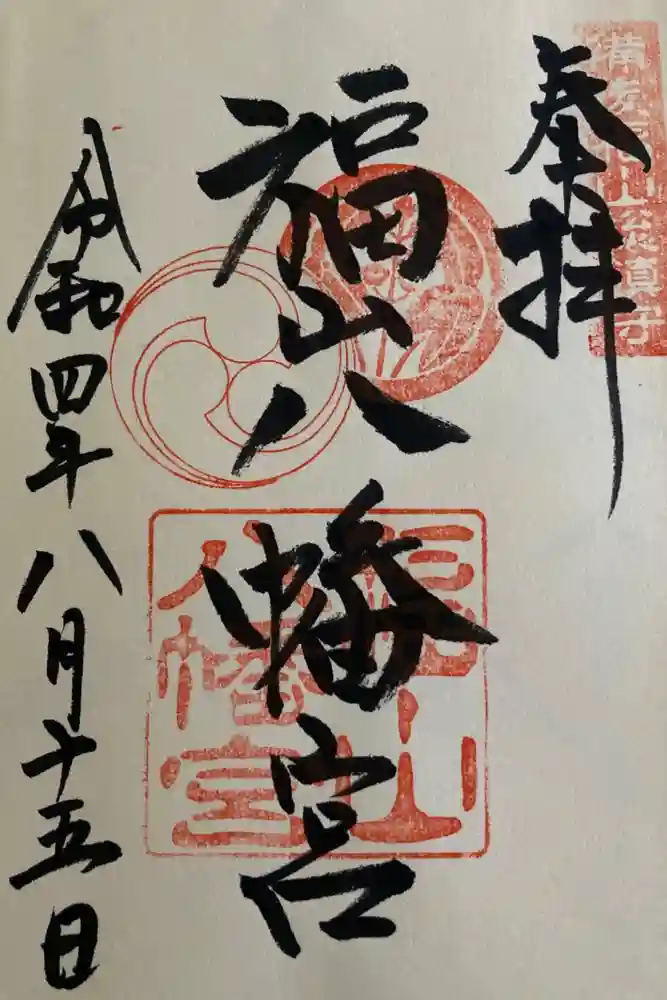 奉拝
福山八幡宮
福山
八幡宮
令和四年八月十五日